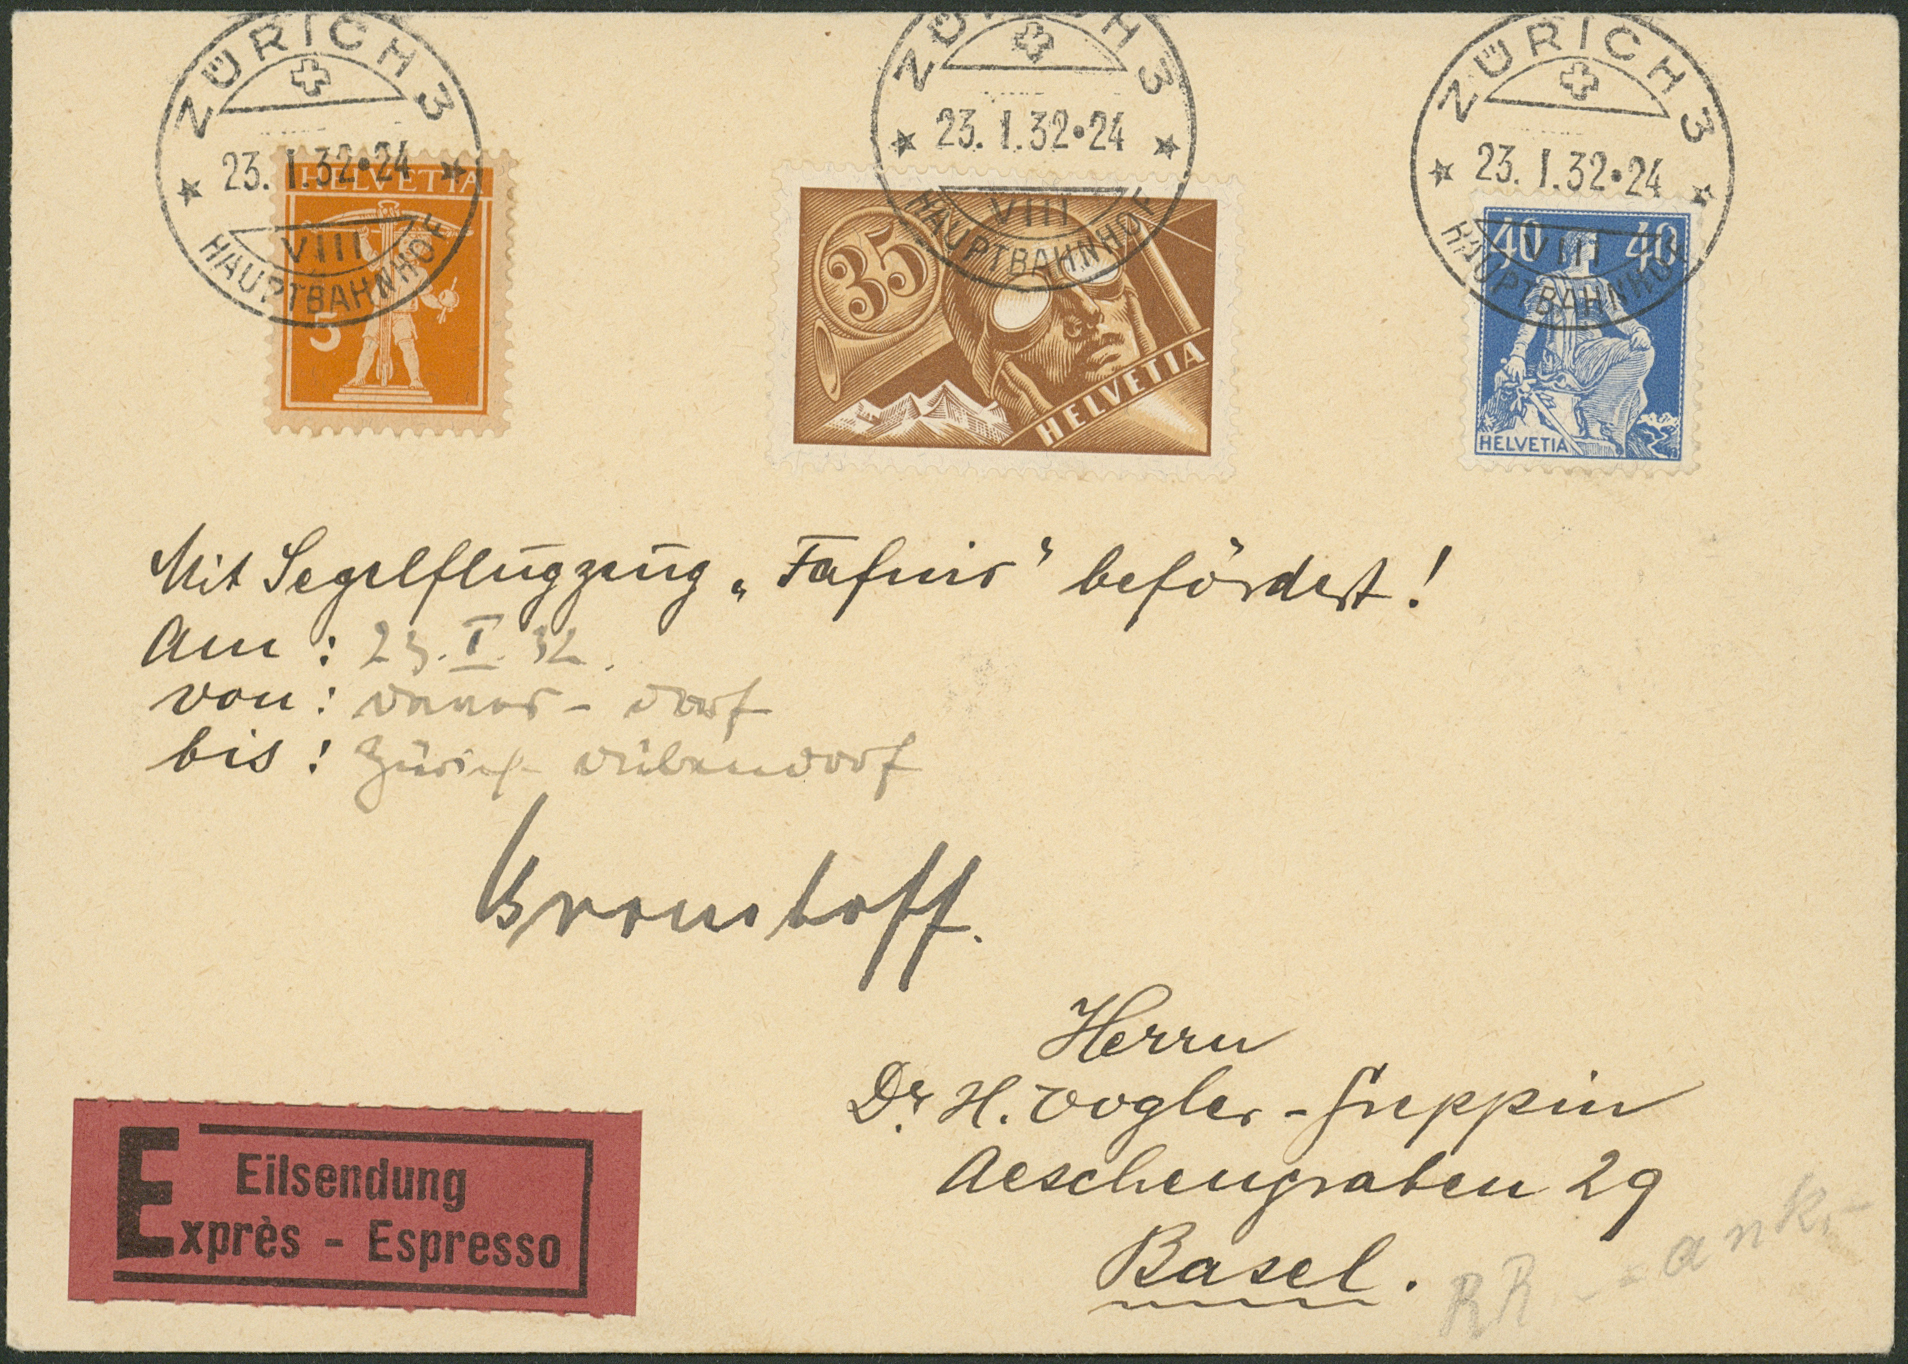 ZÜRICH 3
23. I. 32•24
VIII
HAUPTBAHNHOF
ZÜRICH 3
23. I. 32•24
VIII
HAUPTBAHNHOF
ZÜRICH 3
23. I. 32•24
VIII
HAUPTBAHNHOF
HELVETIA
5
35
HELVETIA
40 40
HELVETIA
Mit Segelflugzeug „Fafnir" befördert!
Am: 23. I. 32.
von: Davos-Dorf
bis: Zürich Dübendorf
Herrn
Dr H. Vogler-Greppin
Aeschengraben 29
Basel.
RR
E Eilsendung
Exprès - Espresso